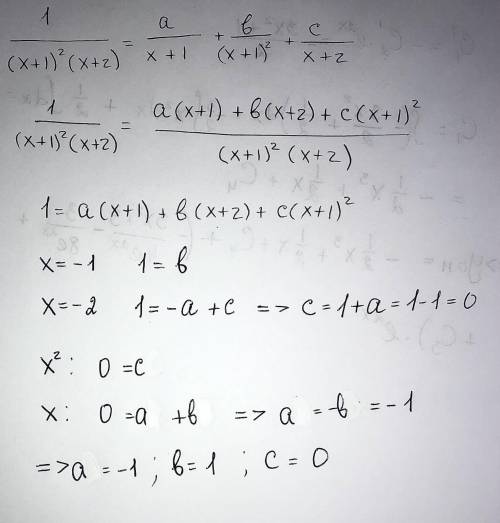 1/((x+1)²(x+2)) = a/(x+1) + b/(x+1)² + c/(x+2)
1/((x+1)²(x+2)) = (a(x+1) + b(x+2) + c(x+1)²)/((x+1)²(x+2))
1 = a(x+1) + b(x+2) + c(x+1)²
x=-1 1=b
x=-2 1=-a+c => c=1+a=1-1=0
x²: 0=c
x: 0=a+b => a=-b=-1
=>a=-1; b=1; c=0